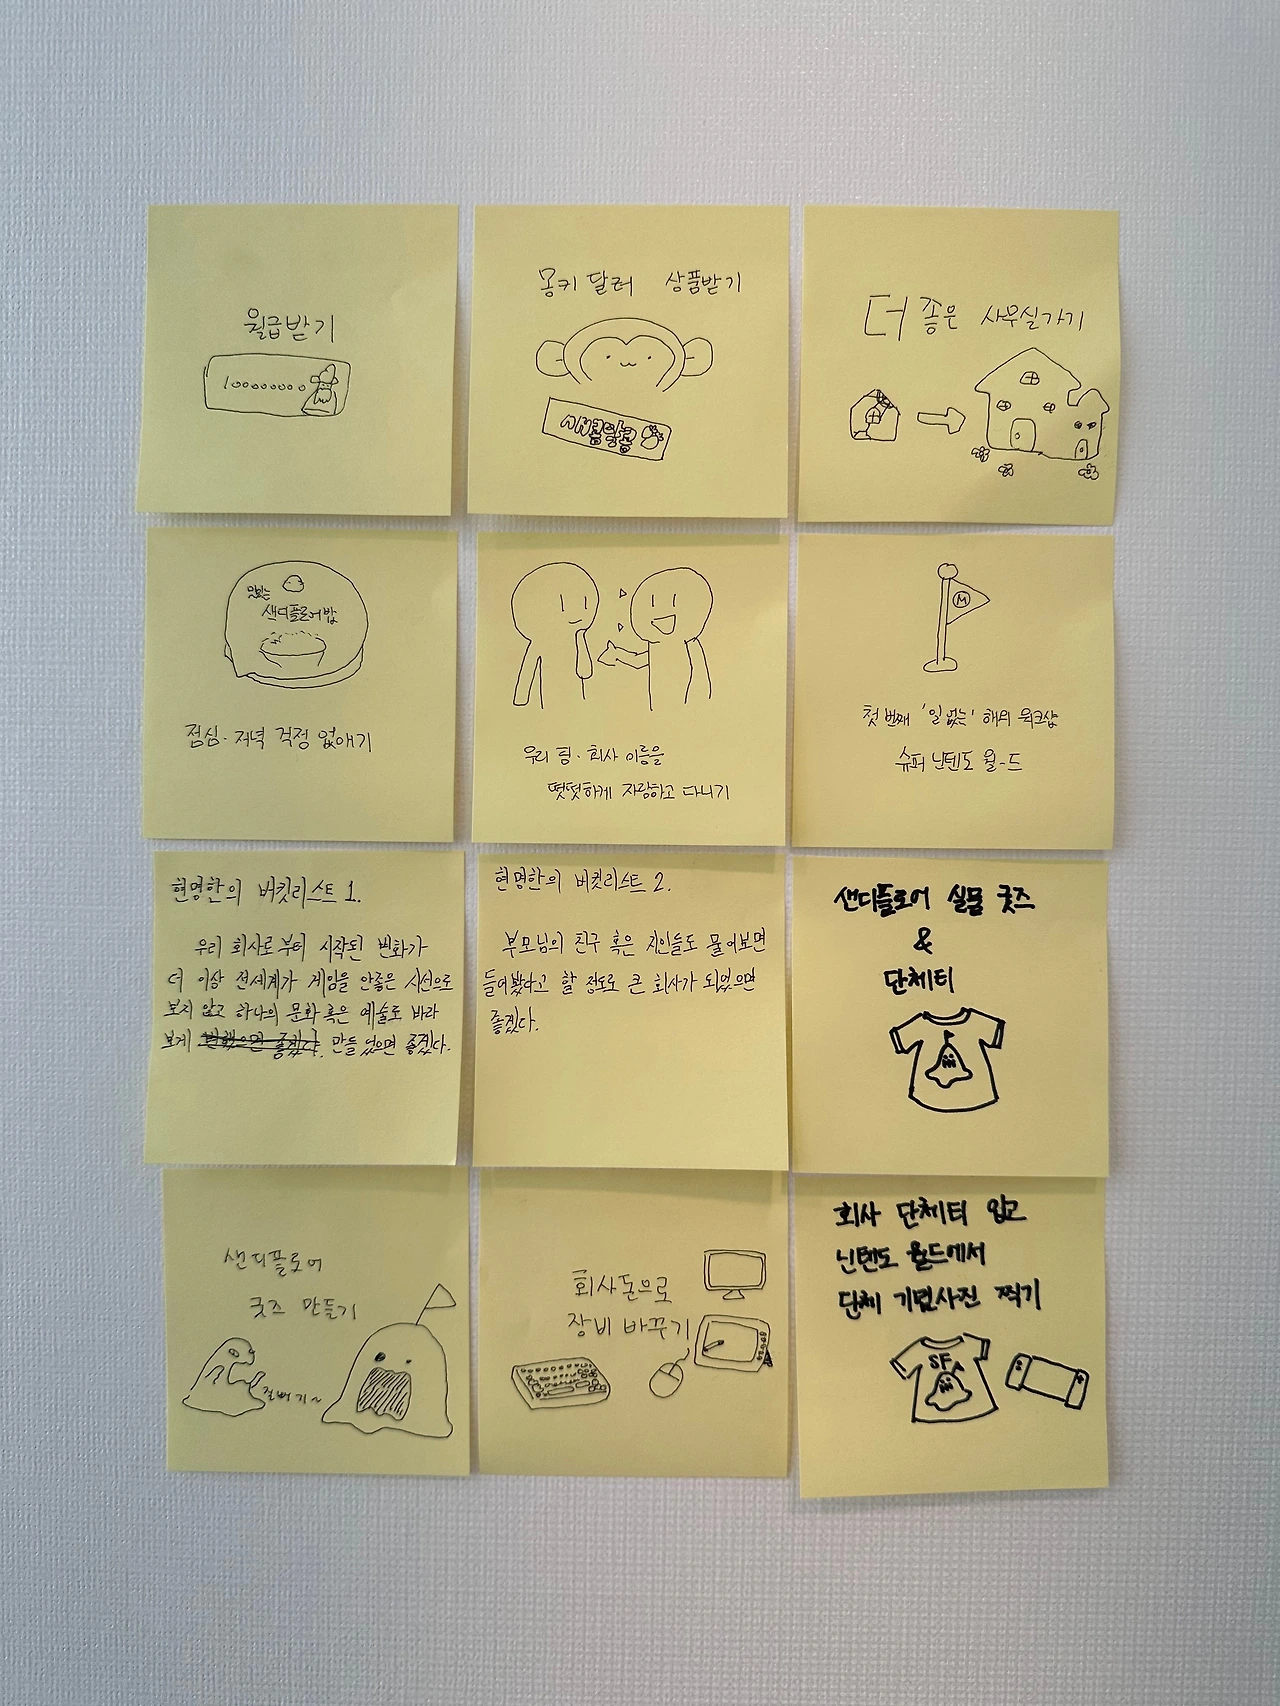 월급받기
100000000
몽키 달러 상품받기
새콤달콤
더 좋은 사무실가기
맛있는
샌디플로어밥
점심·저녁 걱정 없애기
우리 팀·회사 이름을
떳떳하게 자랑하고 다니기
M
첫번째 '일없는' 해의 워크샵
슈퍼 닌텐도 월-드
현명한의 버킷리스트 1.
우리 회사로부터 시작된 변화가
더 이상 전세계가 게임을 안좋은 시선으로
보지 않고 하나의 문화 혹은 예술로 바라
보게 변했으면 좋겠다. 만들었으면 좋겠다.
현명한의 버킷리스트 2.
부모님의 친구 혹은 지인들도 물어보면
들어봤다고 할 정도로 큰 회사가 되었으면
좋겠다.
샌디플로어 실물 굿즈
&
단체티
샌디플로어
굿즈 만들기
걸버기~
회사돈으로
장비 바꾸기
회사 단체티 입고
닌텐도 월드에서
단체 기념사진 찍기
SF